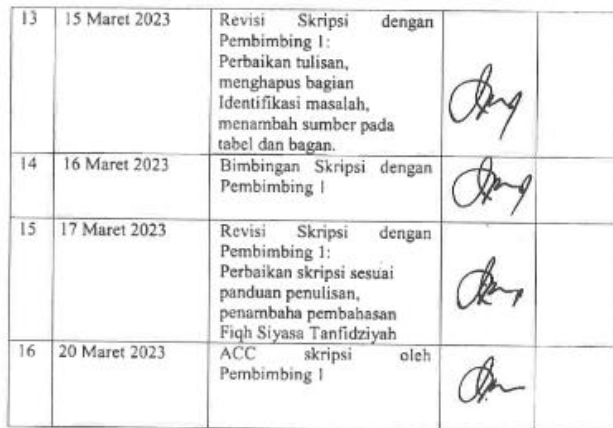 13 15 Maret 2023 Revisi Skripsi dengan
Pembimbing 1:
Perbaikan tulisan,
menghapus bagian
Identifikasi masalah,
menambah sumber pada
tabel dan bagan.
14 16 Maret 2023 Bimbingan Skripsi dengan
Pembimbing 1
15 17 Maret 2023 Revisi Skripsi dengan
Pembimbing 1:
Perbaikan skripsi sesuai
panduan penulisan,
penambaha pembahasan
Fiqh Siyasa Tanfidziyah
16 20 Maret 2023 ACC skripsi oleh
Pembimbing 1